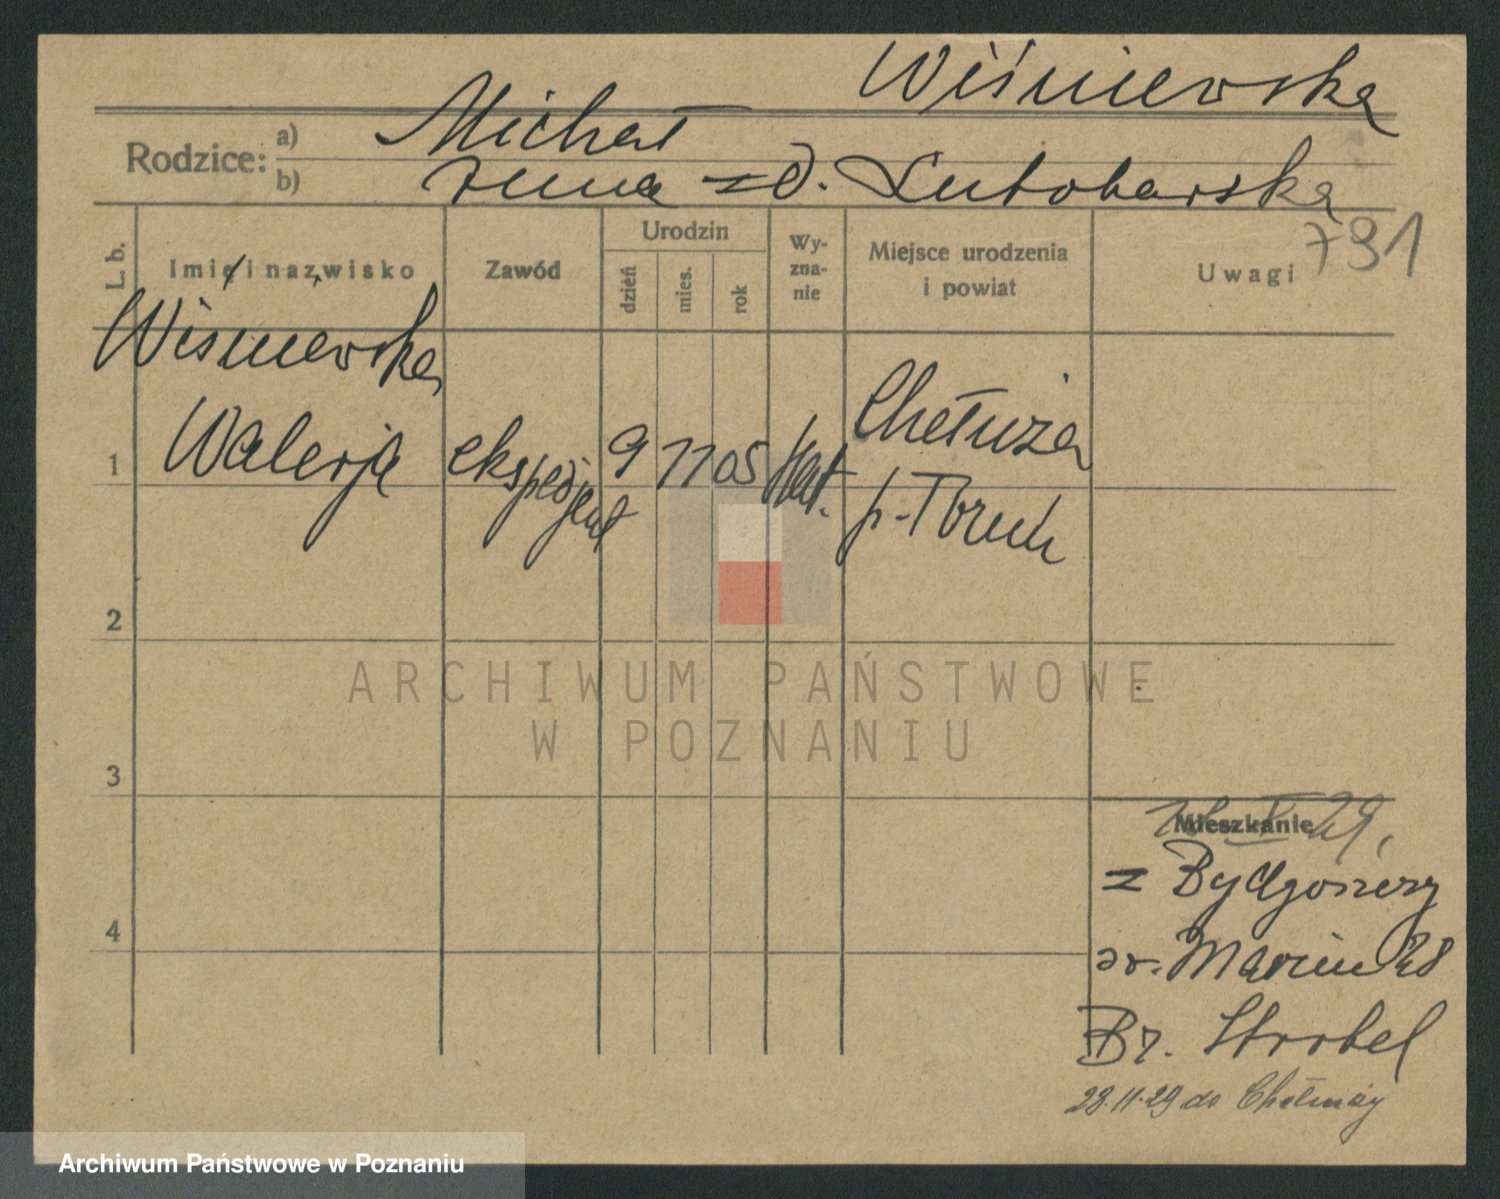 Wiśniewska
Rodzice:
a) Michał
b) Anna zd. Lutoborska
791
L. b.
Imię i nazwisko
Zawód
Urodzin
dzień
mies.
rok
Wy-
zna-
nie
Miejsce urodzenia
i powiat
Uwagi
Wiśniewska
1 Walerja ekspedjent 9 11 05 kat. Chełmża
p. Toruń
2
3
4
Mieszkanie
29.
z Bydgoszczy
Br. Strobel
28.11.29 do Chełmży
ARCHIWUM PAŃSTWOWE
W POZNANIU
Archiwum Państwowe w Poznaniu